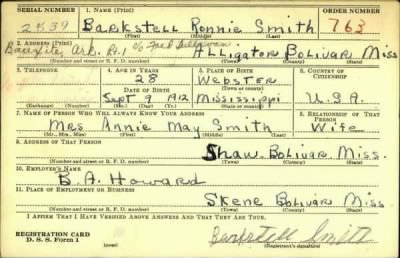 SERIAL NUMBER 1. NAME (Print) ORDER NUMBER
Barkstell Ronnie Smith 763
(First) (Middle) (Last)
2. ADDRESS (Print)
Bauxite, Ark. R.1 c/o Fred
Alligator Bolivar Miss
(Number and street or R. F. D. number) (Town) (County) (State)
3. TELEPHONE 4. AGE IN YEARS 5. PLACE OF BIRTH 6. COUNTRY OF CITIZENSHIP
28 Webster
DATE OF BIRTH (Town or county)
Sept 9 1912 Mississippi U.S.A.
(Exchange) (Number) (Mo.) (Day) (Yr.) (State or country)
7. NAME OF PERSON WHO WILL ALWAYS KNOW YOUR ADDRESS 8. RELATIONSHIP OF THAT PERSON
Mrs Annie May Smith Wife
(Mr., Mrs., Miss) (First) (Middle) (Last)
9. ADDRESS OF THAT PERSON
Shaw. Bolivar Miss.
(Number and street or R. F. D. number) (Town) (County) (State)
10. EMPLOYER'S NAME
B. A. Howard
11. PLACE OF EMPLOYMENT OR BUSINESS
Skene Bolivar Miss
(Number and street or R. F. D. number) (Town) (County) (State)
I AFFIRM THAT I HAVE VERIFIED ABOVE ANSWERS AND THAT THEY ARE TRUE.
REGISTRATION CARD
D. S. S. Form 1 (over) Barkstell Smith
(Registrant's signature)